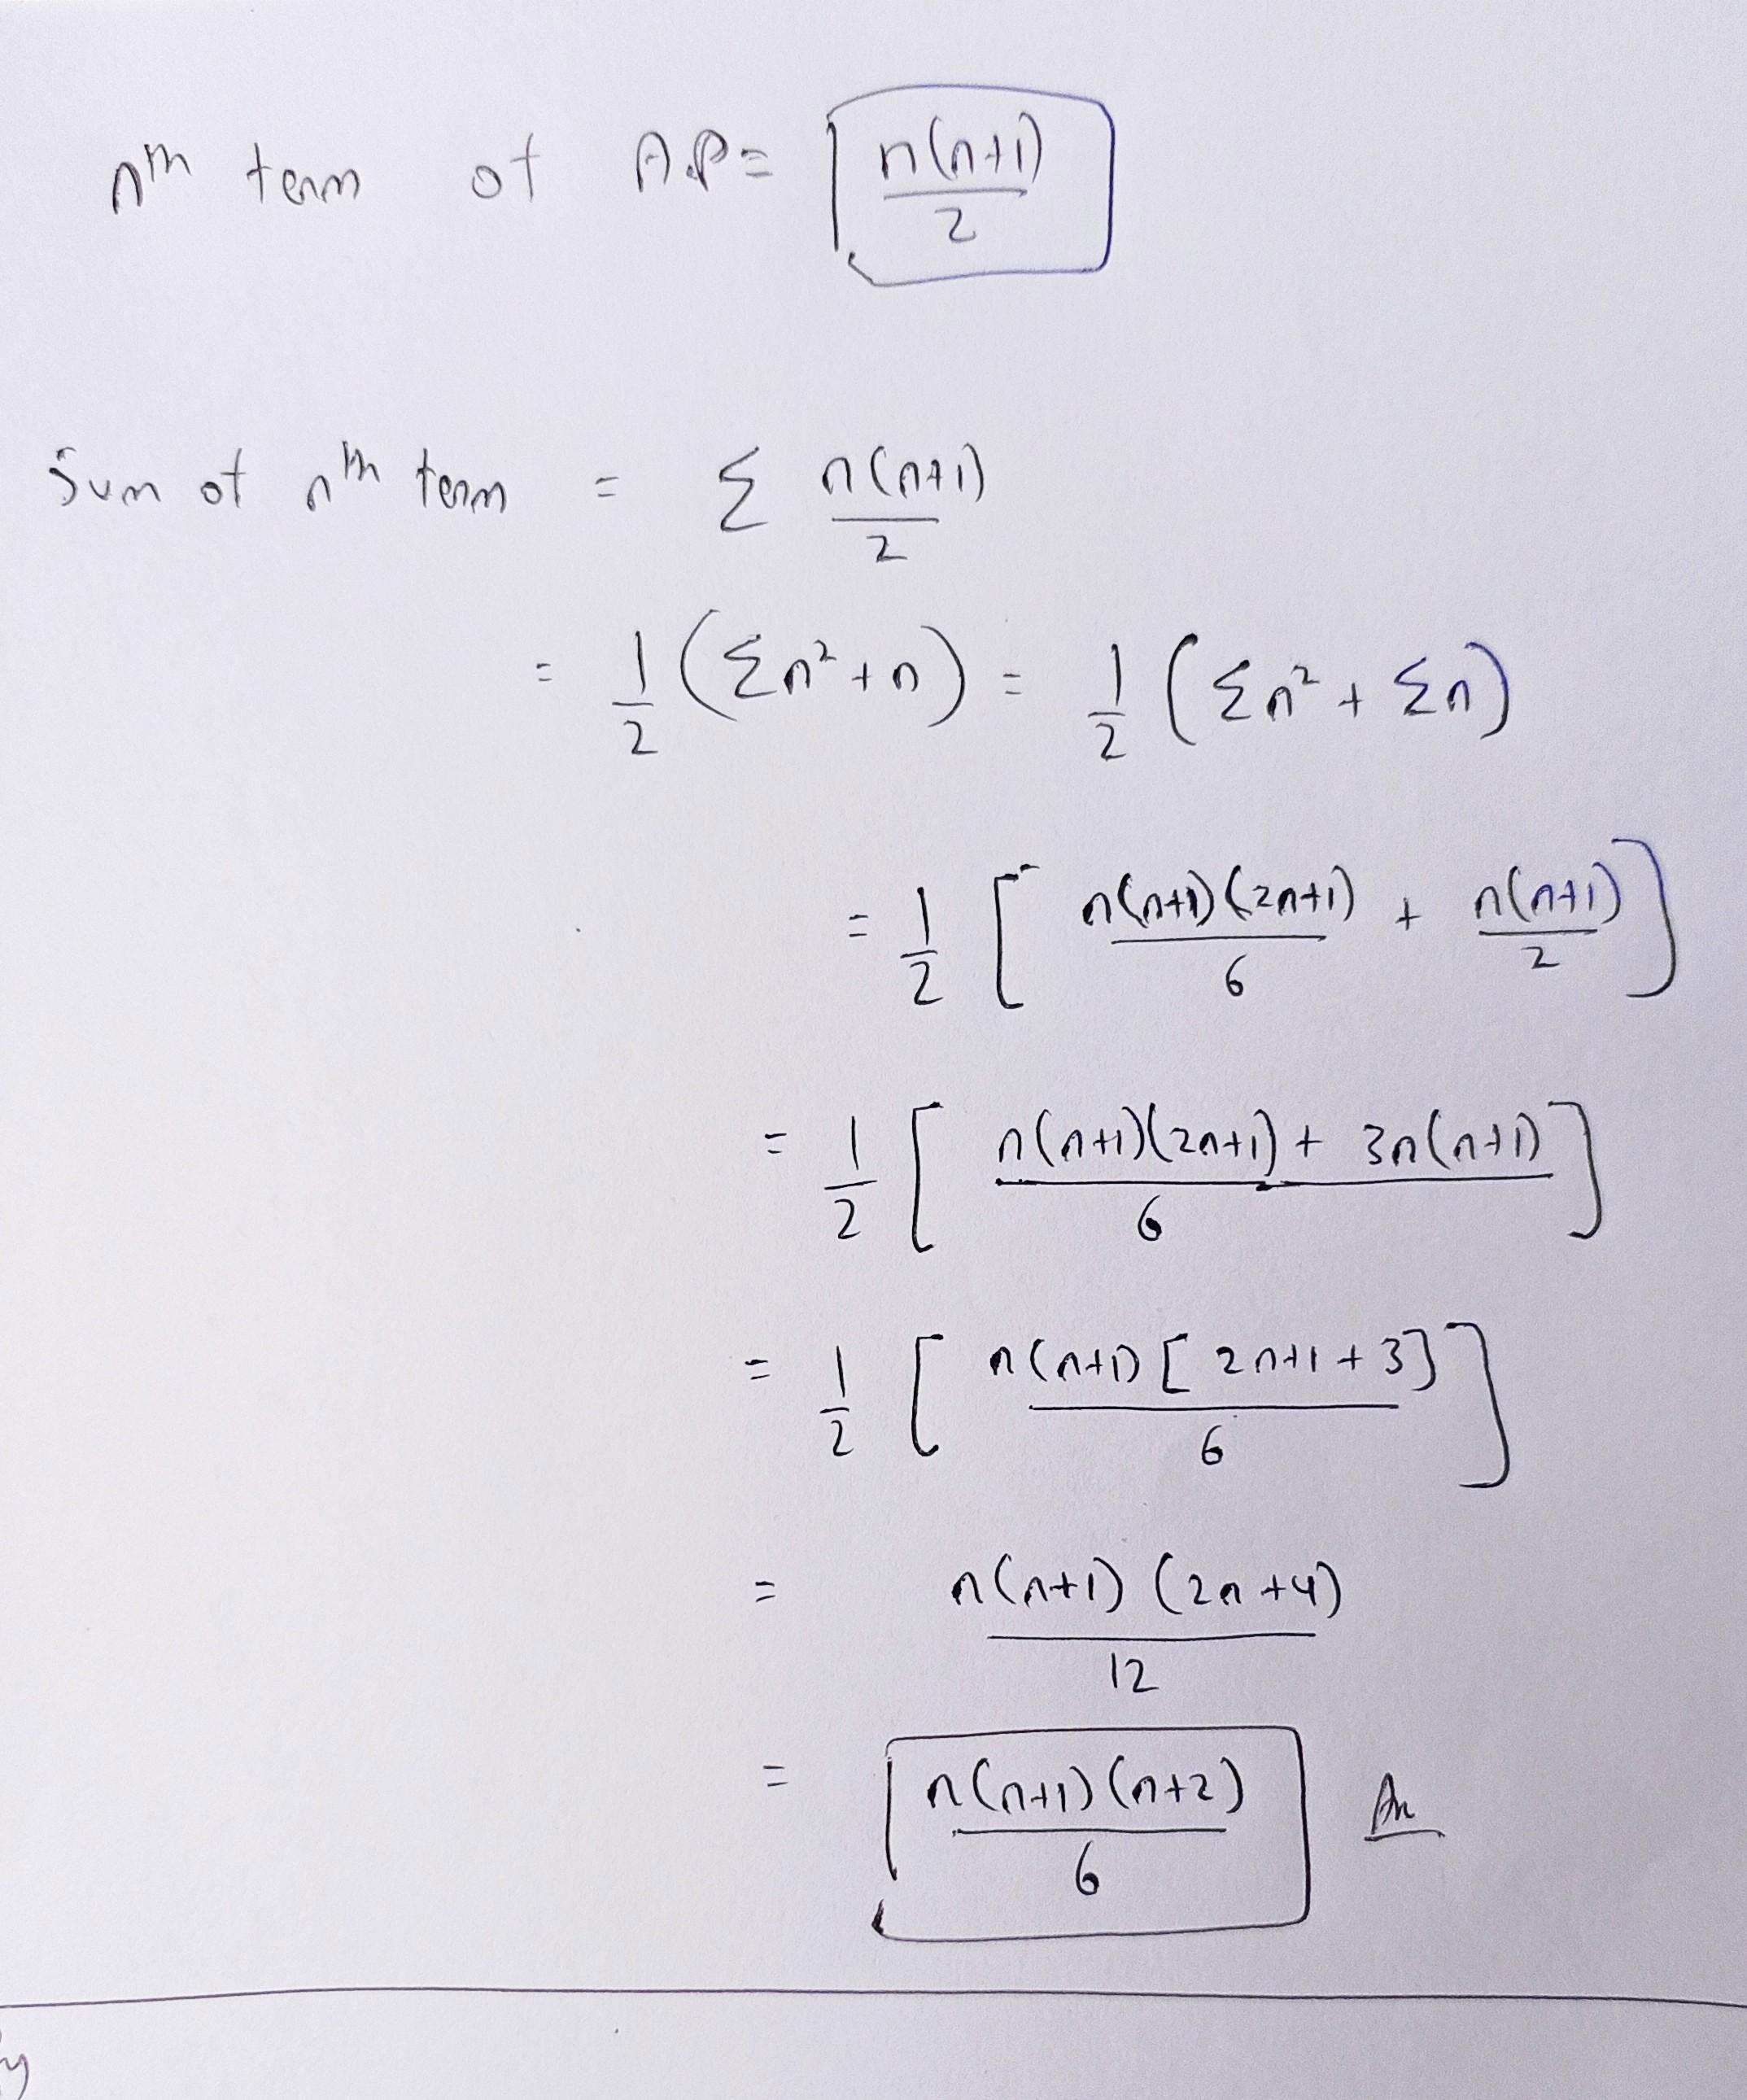 nth term of A.P = n(n+1)/2
Sum of nth term = Σ n(n+1)/2
= 1/2 (Σn² + n) = 1/2 (Σn² + Σn)
= 1/2 [ n(n+1)(2n+1)/6 + n(n+1)/2 ]
= 1/2 [ n(n+1)(2n+1) + 3n(n+1) / 6 ]
= 1/2 [ n(n+1) [2n+1+3] / 6 ]
= n(n+1) (2n+4) / 12
= n(n+1)(n+2) / 6